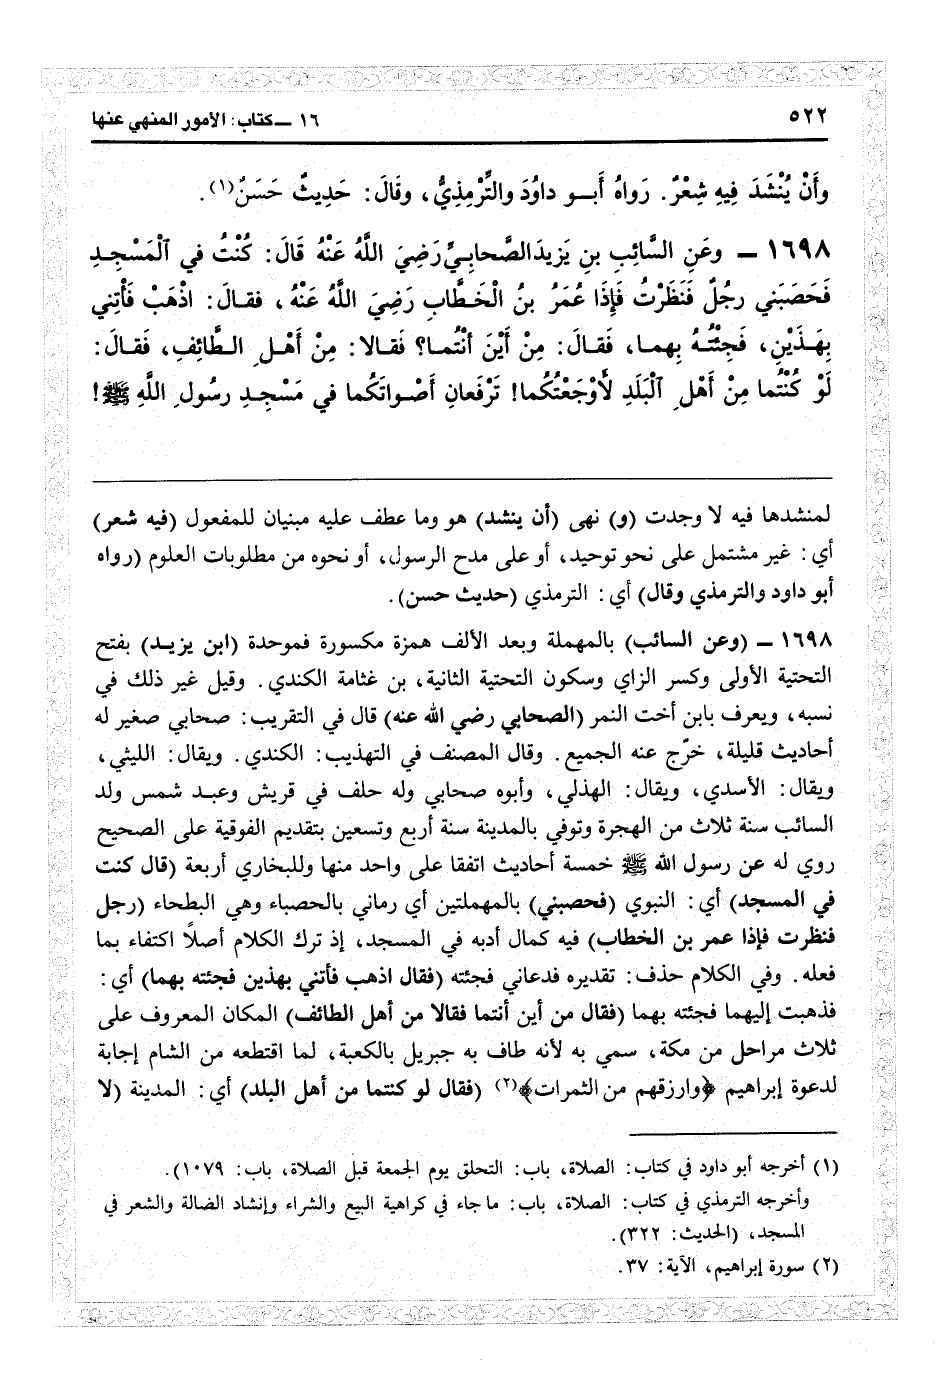 ٥٢٢
١٦ ـ كتاب: الأمور المنهي عنها
وأَنْ يُنْشَدَ فِيهِ شِعْرٌ. رَوَاهُ أَبـو داوُدَ والتِّرْمِذِيُّ، وقَالَ: حَدِيثٌ حَسَنٌ(١).
١٦٩٨ ـ وعَنِ السَّائِبِ بنِ يَزِيدَ الصَّحابِيِّ رَضِيَ اللَّهُ عَنْهُ قَالَ: كُنْتُ في الْمَسْجِدِ
فَحَصَبَني رجُلٌ فَنَظَرْتُ فَإِذَا عُمَرُ بنُ الْخَطَّابِ رَضِيَ اللَّهُ عَنْهُ، فقـالَ: اذْهَبْ فَأْتِني
بِهَذَيْنِ، فَجِئْتُـهُ بِهما، فَقَالَ: مِنْ أَيْنَ أَنْتُما؟ فَقالا: مِنْ أَهْلِ الطَّائِفِ، فَقَالَ:
لَوْ كُنْتُما مِنْ أَهْلِ الْبَلَدِ لأَوْجَعْتُكُما! تَرْفَعانِ أَصْـواتَكُما في مَسْجِـدِ رسُولِ اللَّهِ ﷺ!
لمنشدها فيه لا وجدت (و) نهى (أن ينشد) هو وما عطف عليه مبنيان للمفعول (فيه شعر)
أي: غير مشتمل على نحو توحيد، أو على مدح الرسول، أو نحوه من مطلوبات العلوم (رواه
أبو داود والترمذي وقال) أي: الترمذي (حديث حسن).
١٦٩٨ ـ (وعن السائب) بالمهملة وبعد الألف همزة مكسورة فموحدة (ابن يزيـد) بفتح
التحتية الأولى وكسر الزاي وسكون التحتية الثانية، بن غثامة الكندي. وقيل غير ذلك في
نسبه، ويعرف بابن أخت النمر (الصحابي رضي الله عنه) قال في التقريب: صحابي صغير له
أحاديث قليلة، خرّج عنه الجميع. وقال المصنف في التهذيب: الكندي. ويقال: الليثي،
ويقال: الأسدي، ويقال: الهذلي، وأبوه صحابي وله حلف في قريش وعبـد شمس ولد
السائب سنة ثلاث من الهجرة وتوفي بالمدينة سنة أربع وتسعين بتقديم الفوقية على الصحيح
روي له عن رسول الله ﷺ خمسة أحاديث اتفقا على واحد منها وللبخاري أربعة (قال كنت
في المسجد) أي: النبوي (فحصبني) بالمهملتين أي رماني بالحصباء وهي البطحاء (رجل
فنظرت فإذا عمر بن الخطاب) فيه كمال أدبه في المسجد، إذ ترك الكلام أصلاً اكتفاء بما
فعله. وفي الكلام حذف: تقديره فدعاني فجئته (فقال اذهب فأتني بهذين فجئته بهما) أي:
فذهبت إليهما فجئته بهما (فقال من أين أنتما فقالا من أهل الطائف) المكان المعروف على
ثلاث مراحل من مكة، سمي به لأنه طاف به جبريل بالكعبة، لما اقتطعه من الشام إجابة
لدعوة إبراهيم ﴿وارزقهم من الثمرات﴾(٢) (فقال لو كنتما من أهل البلد) أي: المدينة (لا
(١) أخرجه أبو داود في كتاب: الصلاة، باب: التحلق يوم الجمعة قبل الصلاة، باب: ١٠٧٩).
وأخرجه الترمذي في كتاب: الصلاة، باب: ما جاء في كراهية البيع والشراء وإنشاد الضالة والشعر في
المسجد، (الحديث: ٣٢٢).
(٢) سورة إبراهيم، الآية: ٣٧.